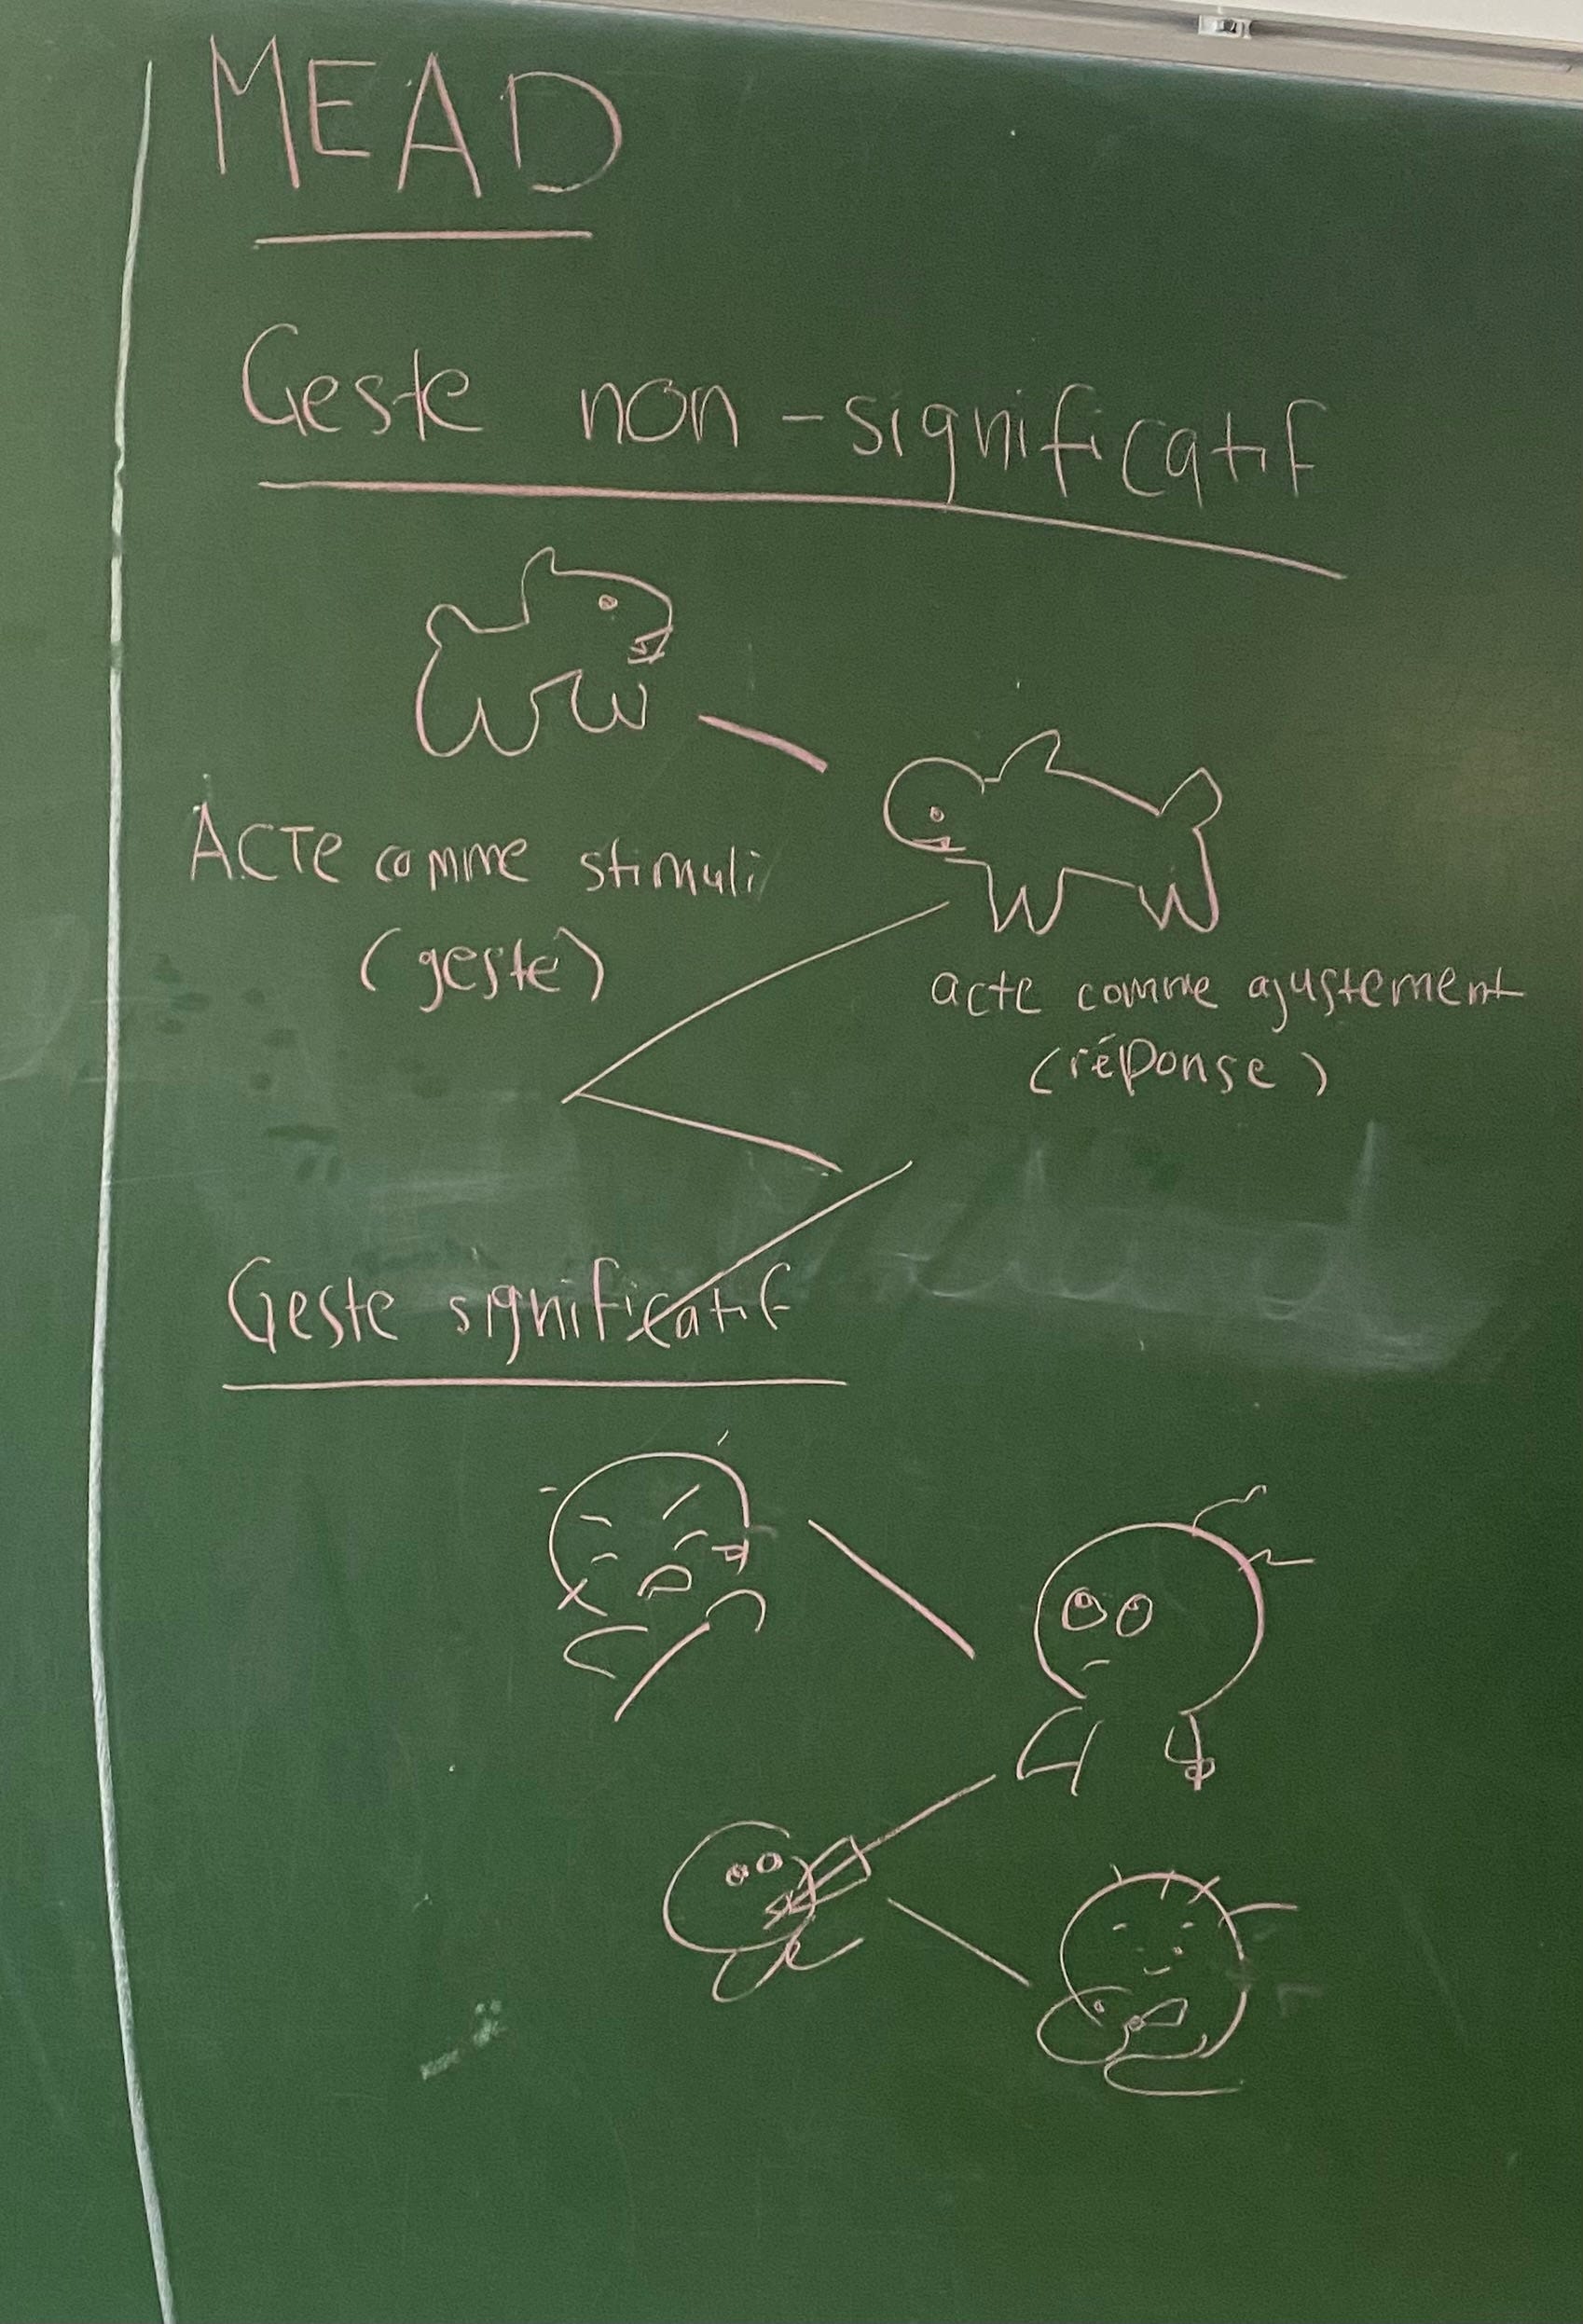 MEAD
Geste non-significatif
ACTE comme stimuli
(geste)
acte comme ajustement
(réponse)
Geste significatif